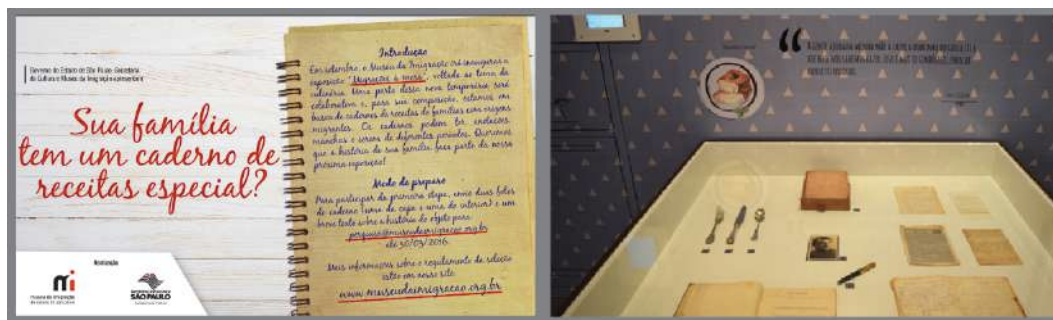 Governo do Estado de São Paulo, Secretaria
da Cultura e Museu da Imigração apresentam
Sua família
tem um caderno de
receitas especial?
Realização
museu da imigração
SÃO PAULO
Introdução
Em setembro, o Museu da Imigração irá inaugurar a
exposição "Migrações à mesa", voltada ao tema da
culinária. Uma parte dessa nova temporária será
colaborativa e, para sua composição, estamos em
busca de cadernos de receitas de famílias com origens
migrantes. Os cadernos podem ter anotações
manchas e serem de diferentes períodos. Queremos
que a história de sua família faça parte da nossa
próxima exposição!
Modo de preparo
Para participar da primeira etapa, envie duas fotos
do caderno (uma da capa e uma do interior) e um
breve texto sobre a história do objeto para:
pesquisa@museudaimigracao.org.br
até 30/03/2016.
Mais informações sobre o regulamento da seleção
estão em nosso site
www.museudaimigracao.org.br
“